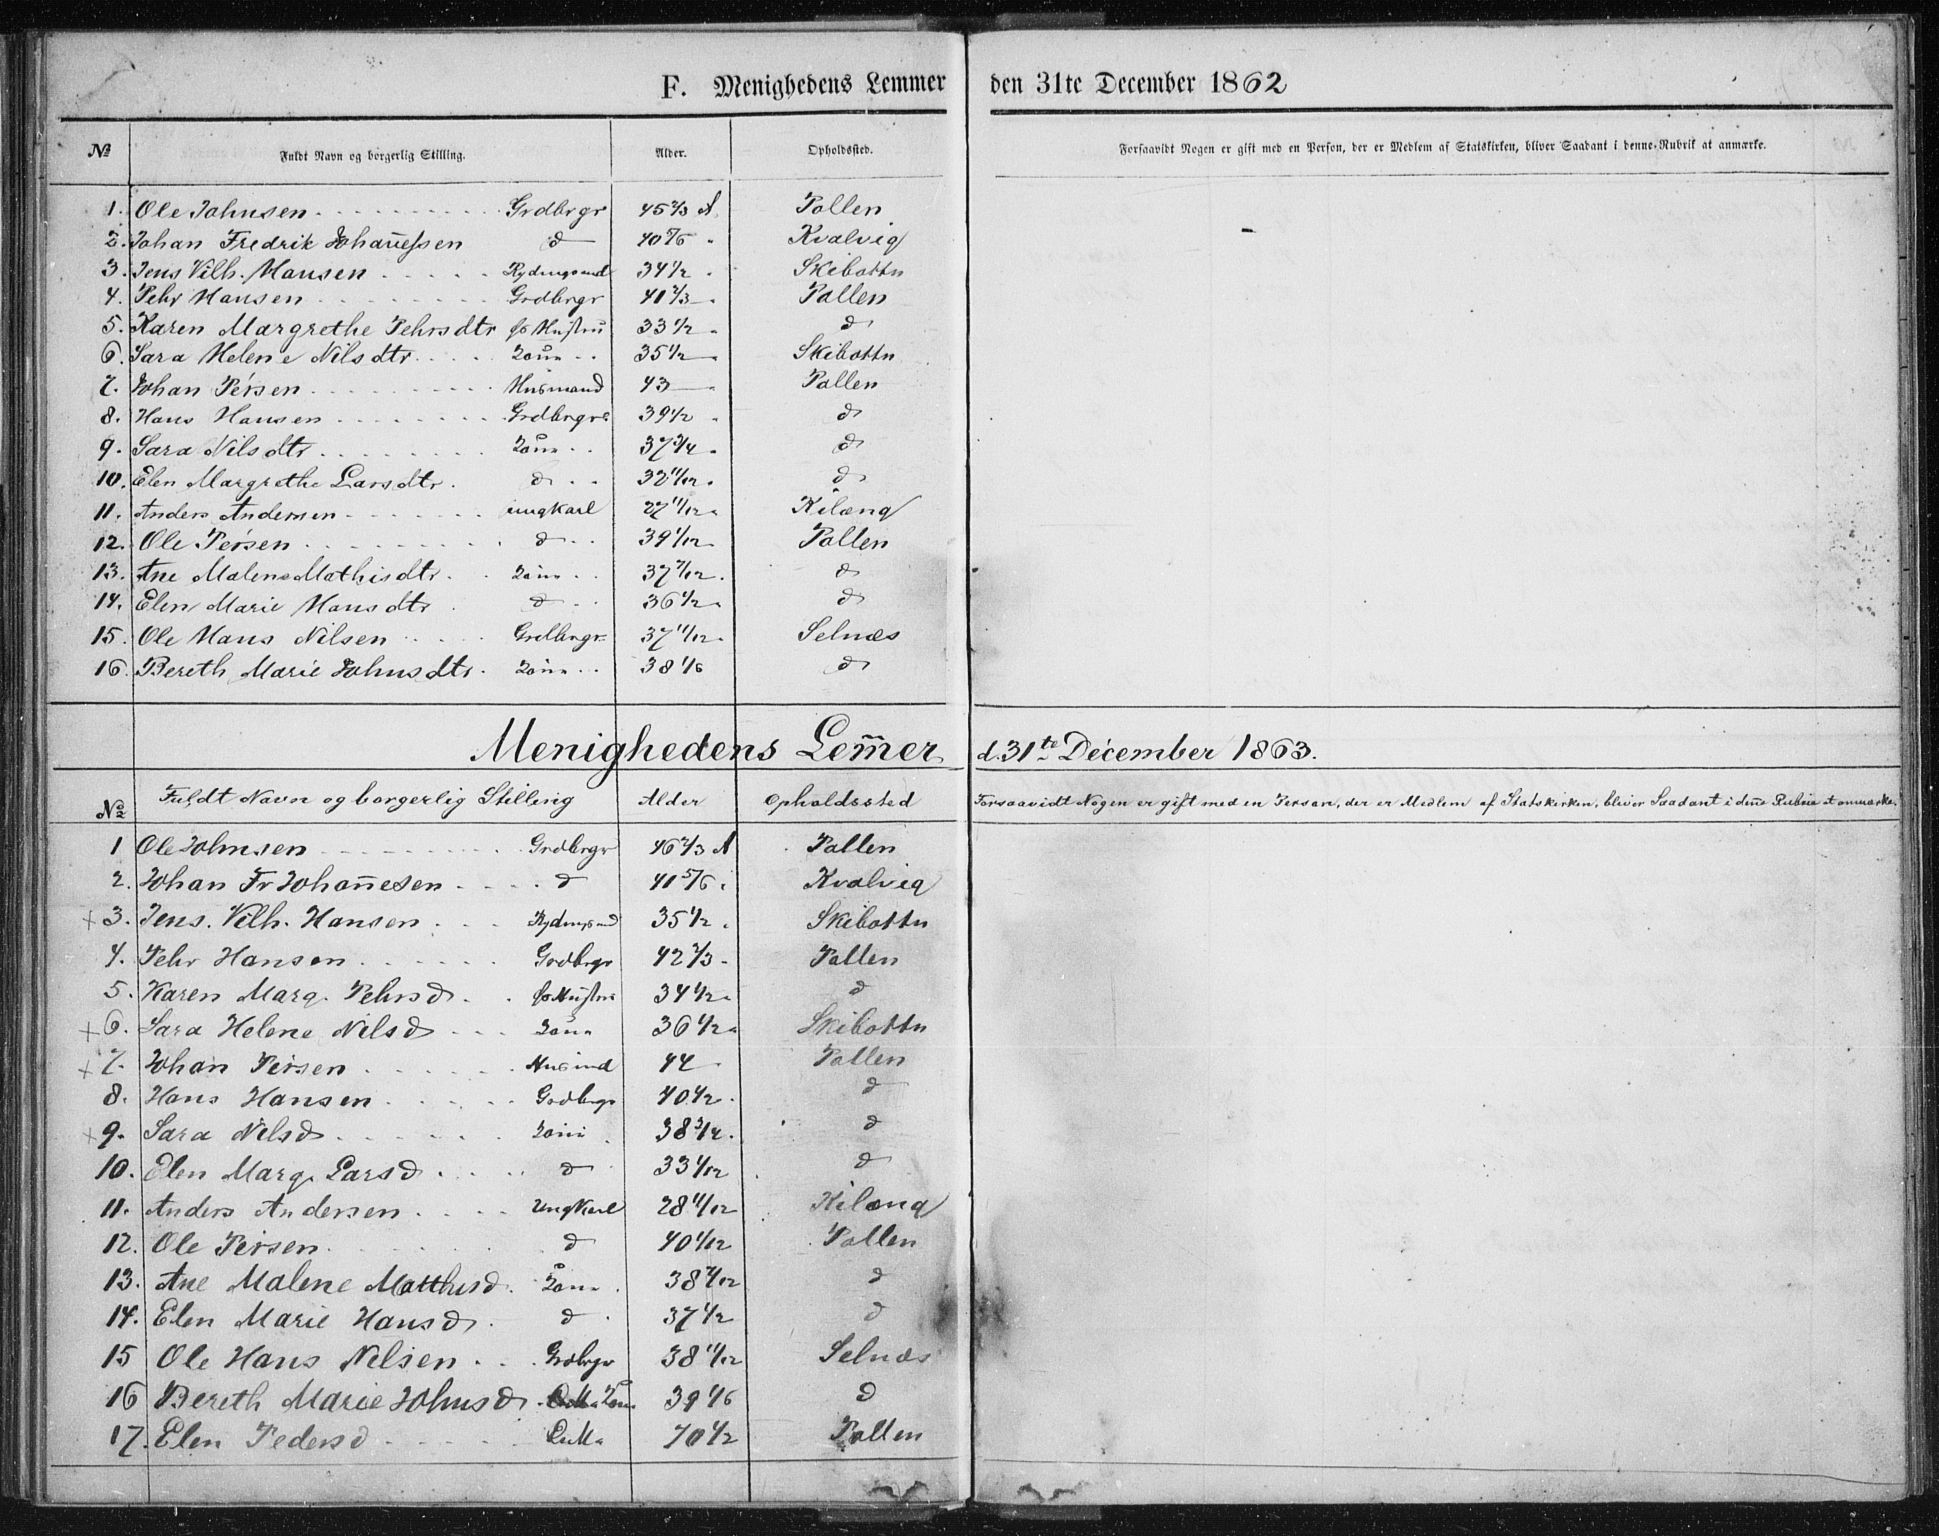 F. Menighedens Lemmer den 31te December 1862
№ Fuldt Navn og borgerlig Stilling. Alder. Opholdssted. Forsaavidt Nogen er gift med en Person, der er Medlem af Statskirken, bliver Saadant i denne Rubrik at anmærke.
1. Ole Johnsen Grdbrgr 45 2/3 A Pollen
2. Johan Fredrik Johan̄essen d 40 5/6 Kvalvig
3. Jens Vilh. Hansen Rydngsmd 34 1/2 Skibottn
4. Pehr Hansen Grdbrgr 41 2/3 Pollen
5. Karen Margrethe Pehrsdtr Hustru 33 1/2 d
6. Sara Helene Nilsdtr 35 1/2 Skibottn
7. Johan Persen Husmand 43 Pollen
8. Hans Hansen Grdbrgr 39 1/2 d
9. Sara Nilsdtr 37 3/4 d
10. Elen Margrethe Larsdtr d 32 11/12 d
11. Anders Andersen ungkarl 27 11/12 Kilæng
12. Ole Persen d 39 1/12 Pollen
13. Ane Malene Mathisdtr 37 7/12 d
14. Elen Marie Hansdtr d 36 1/2 d
15. Ole Hans Nilsen Grdbrgr 37 11/12 Selnæs
16. Bereth Marie Johnsdtr 38 1/6 d
Menighedens Lem̄er d. 31te December 1863.
№ Fuldt Navn og borgerlig Stilling Alder Opholdssted Forsaavidt Nogen er gift med en Person, der er Medlem af Statskirken, bliver Saadant i den̄e Rubrik at anmærke.
1 Ole Johnsen Grdbrgr 46 2/3 A Pollen
2. Johan Fr Johan̄esen d 41 5/6 Kvalvig
+ 3. Jens. Vilh. Hansen Rydngsmd 35 1/2 Skibottn
4. Pehr Hansen Grdbrgr 42 2/3 Pollen
5. Karen Marg. Pehrsd Hustru 34 1/2 d
+ 6. Sara Helene Nilsd 36 1/2 Skibottn
+ 7. Johan Persen Husmd 44 Pollen
8. Hans Hansen Grdbrgr 40 1/2 d
+ 9. Sara Nilsd 38 3/4 d
10. Elen Marg. Larsd d 33 11/12 d
11. Anders Andersen Ungkarl 28 11/12 Kilæng
12. Ole Persen d 40 1/12 Pollen
13. Ane Malene Matthisd 38 7/12 d
14. Elen Marie Hansd d 37 1/2 d
15 Ole Hans Nilsen Grdbrgr 38 11/12 Selnæs
16 Bereth Marie Johnsd 39 1/6 d
17. Elen Pedersd 70 1/2 Pollen